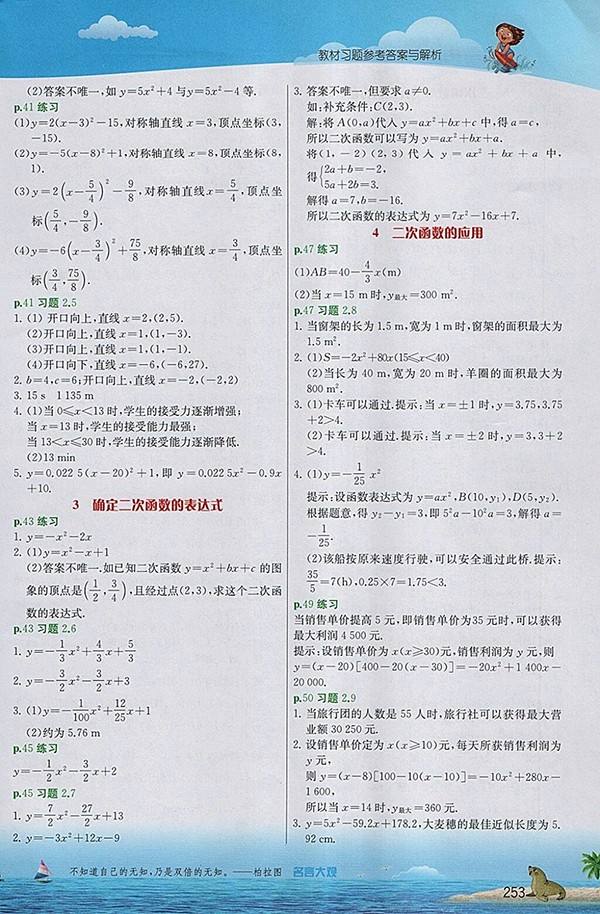 教材习题参考答案与解析
(2)答案不唯一,如 y=5x²+4 与 y=5x²-4 等.
p.41 练习
(1)y=2(x-3)²-15,对称轴直线 x=3,顶点坐标(3,
-15).
(2)y=-5(x-8)²+1,对称轴直线 x=8,顶点坐标(8,
1).
(3)y=2(x-5/4)²-9/8,对称轴直线 x=5/4,顶点坐
标(5/4,-9/8).
(4)y=-6(x-3/4)²+75/8,对称轴直线 x=3/4,顶点坐
标(3/4,75/8).
p.41 习题 2.5
1. (1) 开口向上,直线 x=2,(2,5).
(2)开口向上,直线 x=1,(1,-3).
(3)开口向上,直线 x=1,(1,-1).
(4)开口向下,直线 x=-6,(-6,27).
2. b=4,c=6;开口向上,直线 x=-2,(-2,2)
3. 15 s 1 135 m
4. (1)当 0⩽x<13 时,学生的接受力逐渐增强;
当 x=13 时,学生的接受能力最强;
当 13<x⩽30 时,学生的接受能力逐渐降低.
(2)13 min
5. y=0.022 5(x-20)²+1,即 y=0.022 5x²-0.9x
+10.
3 确定二次函数的表达式
p.43 练习
1. y=-x²-2x
2. (1)y=x²-x+1
(2)答案不唯一.如已知二次函数 y=x²+bx+c 的图
象的顶点是(1/2,3/4),且经过点(2,3),求这个二次函
数的表达式.
p.43 习题 2.6
1. y=-1/3x²+4/3x+5/3
2. y=-3/2x²-3/2x+3
3. (1)y=-1/100x²+12/25x+1
(2)约为 5.76 m
p.45 练习
y=-1/2x²-3/2x+2
p.45 习题 2.7
1. y=7/2x²-27/2x+13
2. y=-3x²+12x-9
3. 答案不唯一,但要求 a≠0.
如:补充条件:C(2,3).
解:将 A(0,a)代入 y=ax²+bx+c 中,得 a=c,
所以二次函数可以写为 y=ax²+bx+a.
将(1,-2)(2,3)代入 y=ax²+bx+a 中,
得{2a+b=-2,
5a+2b=3.
解得 a=7,b=-16.
所以二次函数的表达式为 y=7x²-16x+7.
4 二次函数的应用
p.47 练习
(1)AB=40-4/3x(m)
(2)当 x=15 m 时,y最大=300 m².
p.47 习题 2.8
1. 当窗架的长为 1.5 m,宽为 1 m 时,窗架的面积最大为
1.5 m².
2. (1)S=-2x²+80x(15⩽x<40)
(2)当长为 40 m,宽为 20 m 时,羊圈的面积最大为
800 m².
3. (1)卡车可以通过.提示:当 x=±1 时,y=3.75,3.75
+2>4.
(2)卡车可以通过.提示:当 x=±2 时,y=3,3+2
>4.
4. (1)y=-1/25 x²
提示:设函数表达式为 y=ax²,B(10,y₁),D(5,y₂).
根据题意,得 y₂-y₁=3,即 5²a-10²a=3,解得 a=
-1/25.
(2)该船按原来速度行驶,可以安全通过此桥.提示:
35/5=7(h),0.25×7=1.75<3.
p.49 练习
当销售单价提高 5 元,即销售单价为35 元时,可以获得
最大利润 4 500 元.
提示:设销售单价为 x(x⩾30)元,销售利润为 y 元,则
y=(x-20)[400-20(x-30)]=-20x²+1 400x-
20 000.
p.50 习题 2.9
1. 当旅行团的人数是 55 人时,旅行社可以获得最大营
业额 30 250 元.
2. 设销售单价定为 x(x⩾10)元,每天所获销售利润为
y 元,
则 y=(x-8)[100-10(x-10)]=-10x²+280x-
1 600,
所以当 x=14 时,y最大=360 元.
3. y=5x²-59.2x+178.2,大麦穗的最佳近似长度为 5.
92 cm.
不知道自己的无知,乃是双倍的无知。——柏拉图 名言大观
253